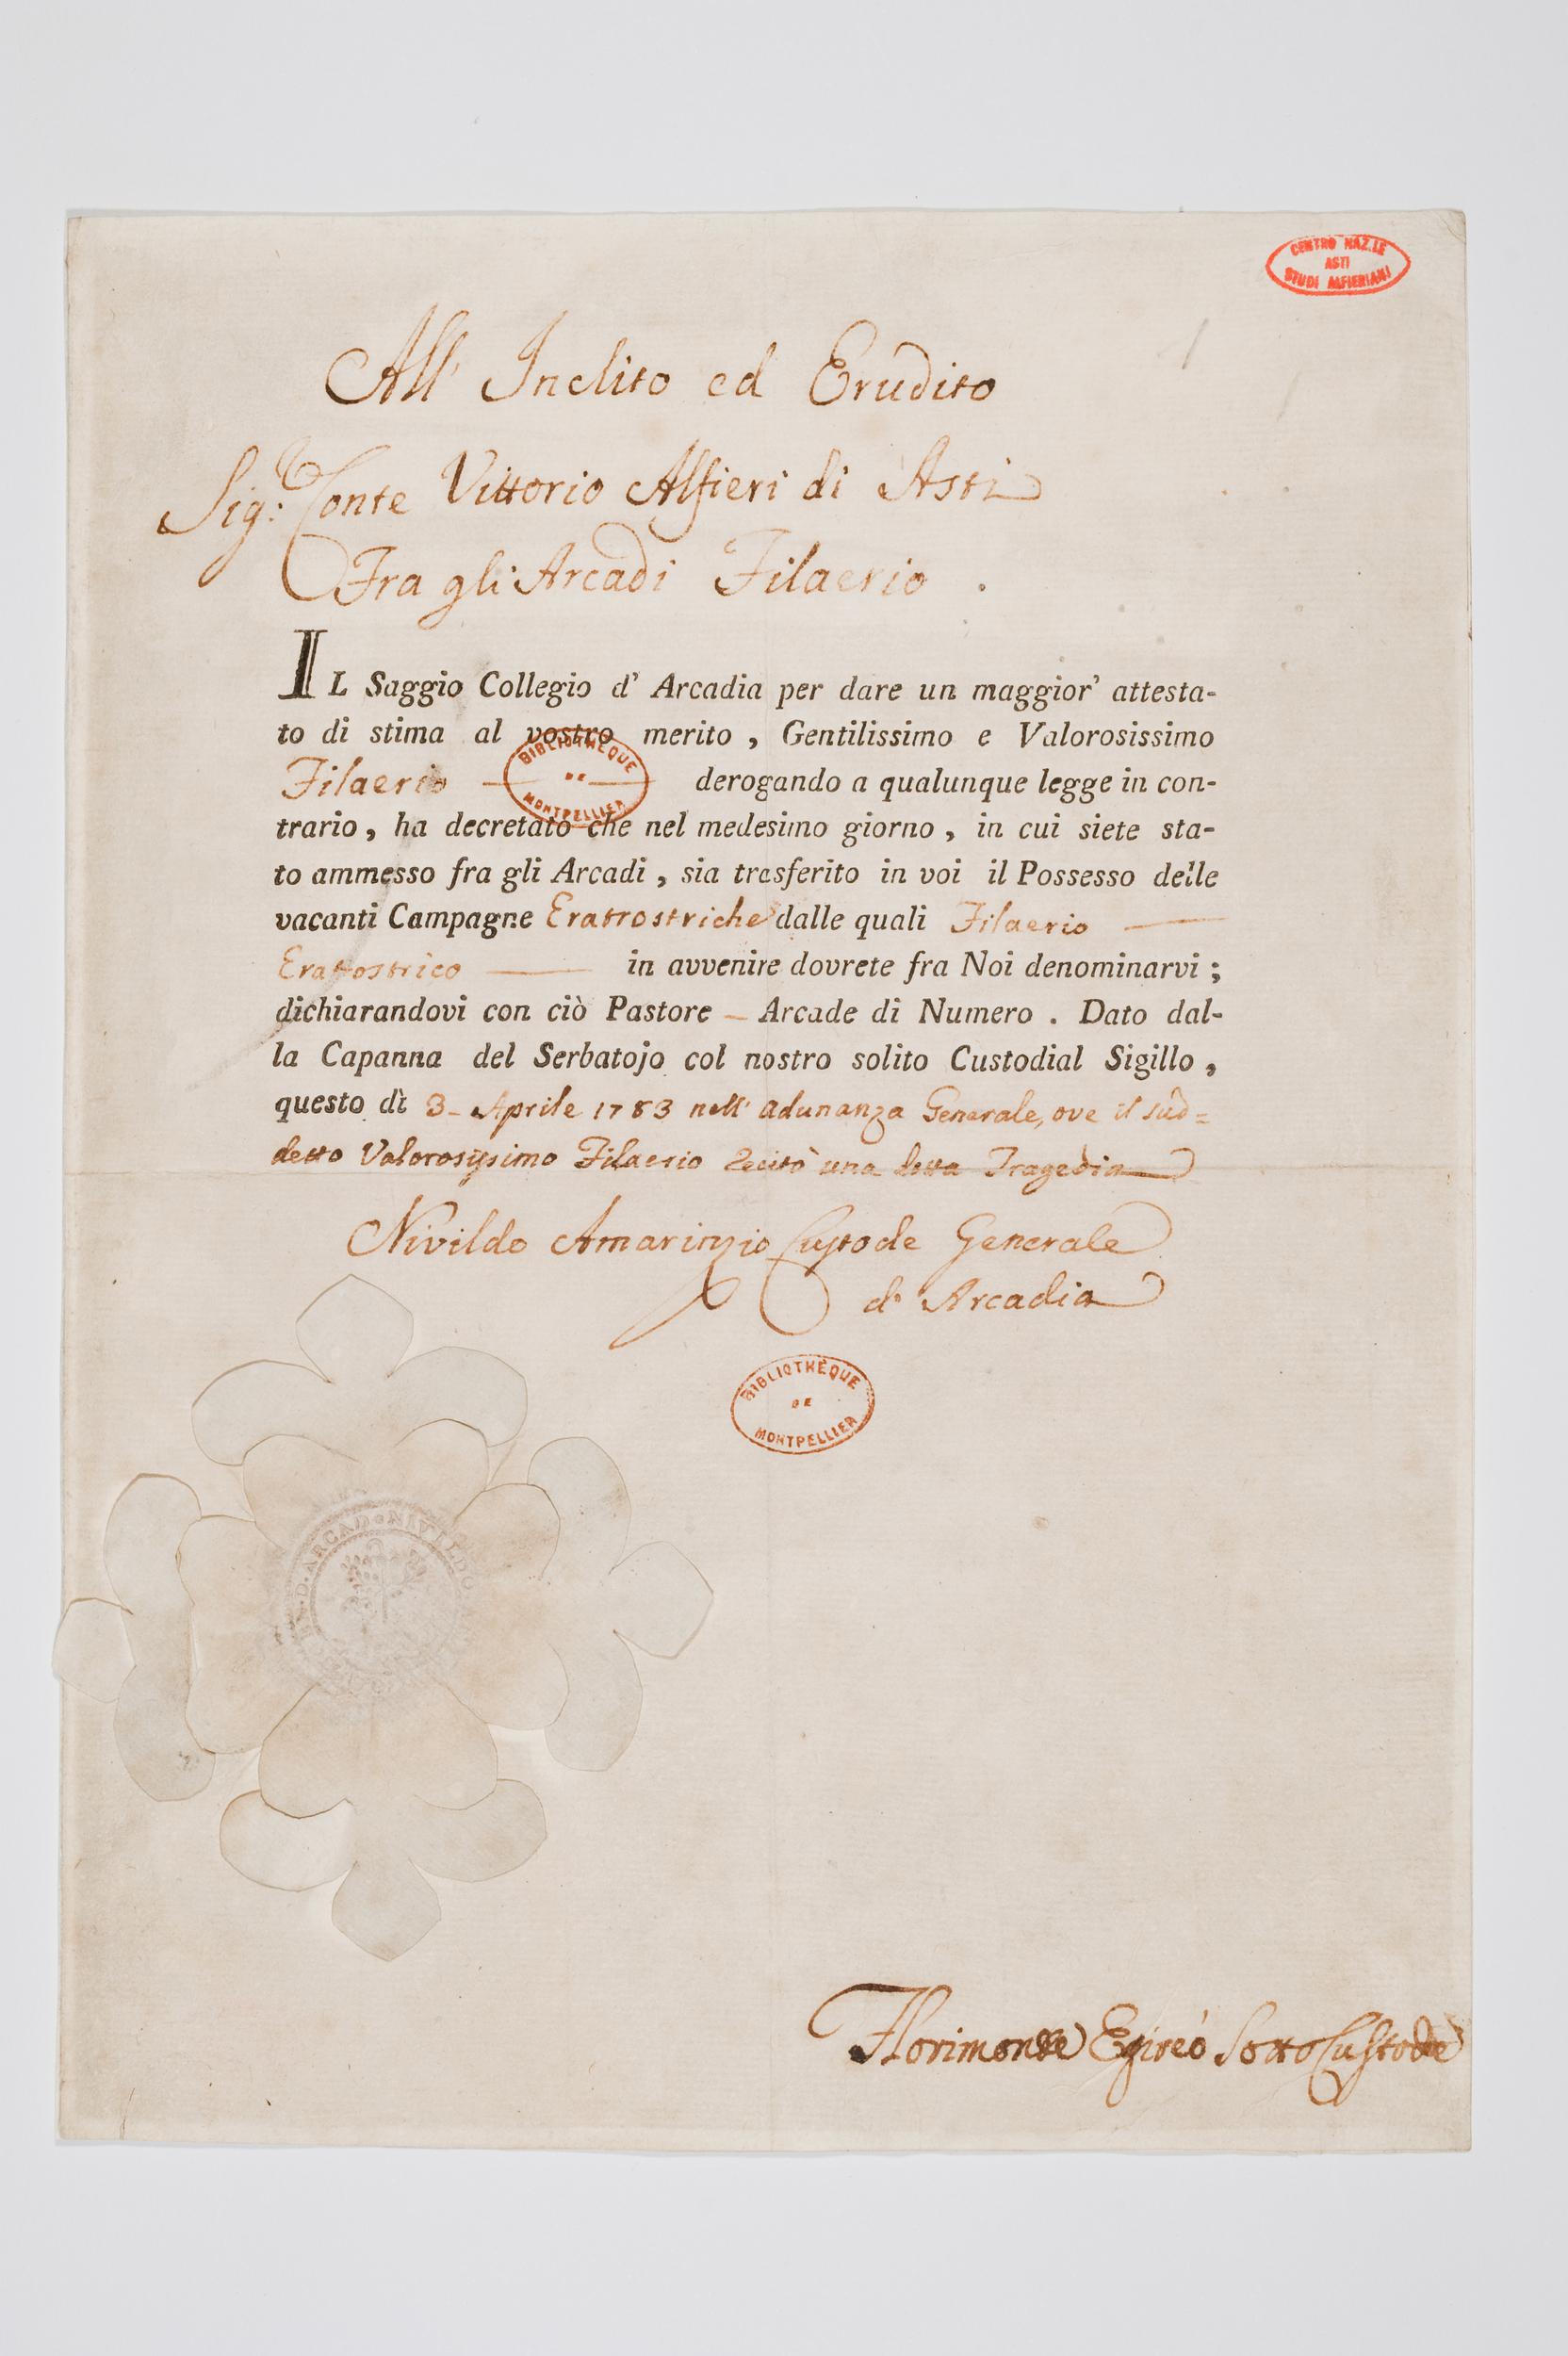 CENTRO NAZ.LE
ASTI
STUDI ALFIERIANI
1
All' Inclito ed Erudito
Sig: Conte Vittorio Alfieri di Asti
Fra gli Arcadi Filaerio .
IL Saggio Collegio d' Arcadia per dare un maggior' attesta-
to di stima al vostro merito , Gentilissimo e Valorosissimo
Filaerio derogando a qualunque legge in con-
BIBLIOTHEQUE
DE
MONTPELLIER
trario , ha decretato che nel medesimo giorno , in cui siete sta-
to ammesso fra gli Arcadi , sia trasferito in voi il Possesso delle
vacanti Campagne Eratrostriche dalle quali Filaerio —
Erattostrico — in avvenire dovrete fra Noi denominarvi ;
dichiarandovi con ciò Pastore — Arcade di Numero . Dato dal-
la Capanna del Serbatojo col nostro solito Custodial Sigillo ,
questo dì 3 - Aprile 1783 nell' Adunanza Generale, ove il sud=
detto Valorosissimo Filaerio Recitò una Tragedia
Nivildo Amarinzio Custode Generale
d' Arcadia
BIBLIOTHÈQUE
DE
MONTPELLIER
D. ARCAD. NIVILDO
Florimonte Egireo Sotto Custode